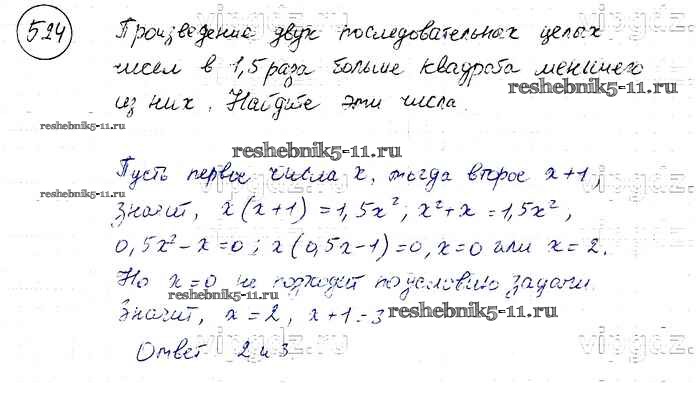 524
Произведение двух последовательных целых
чисел в 1,5 раза больше квадрата меньшего
из них. Найдите эти числа.
reshebnik5-11.ru
reshebnik5-11.ru
reshebnik5-11.ru
Пусть первое число x, тогда второе x+1,
reshebnik5-11.ru
Значит, x(x+1)=1,5x²; x²+x=1,5x²,
0,5x²-x=0; x(0,5x-1)=0, x=0 или x=2.
Но x=0 не подходит по условию задачи.
reshebnik5-11.ru
Значит, x=2, x+1=3
reshebnik5-11.ru
Ответ 2 и 3
vipgdz.ru